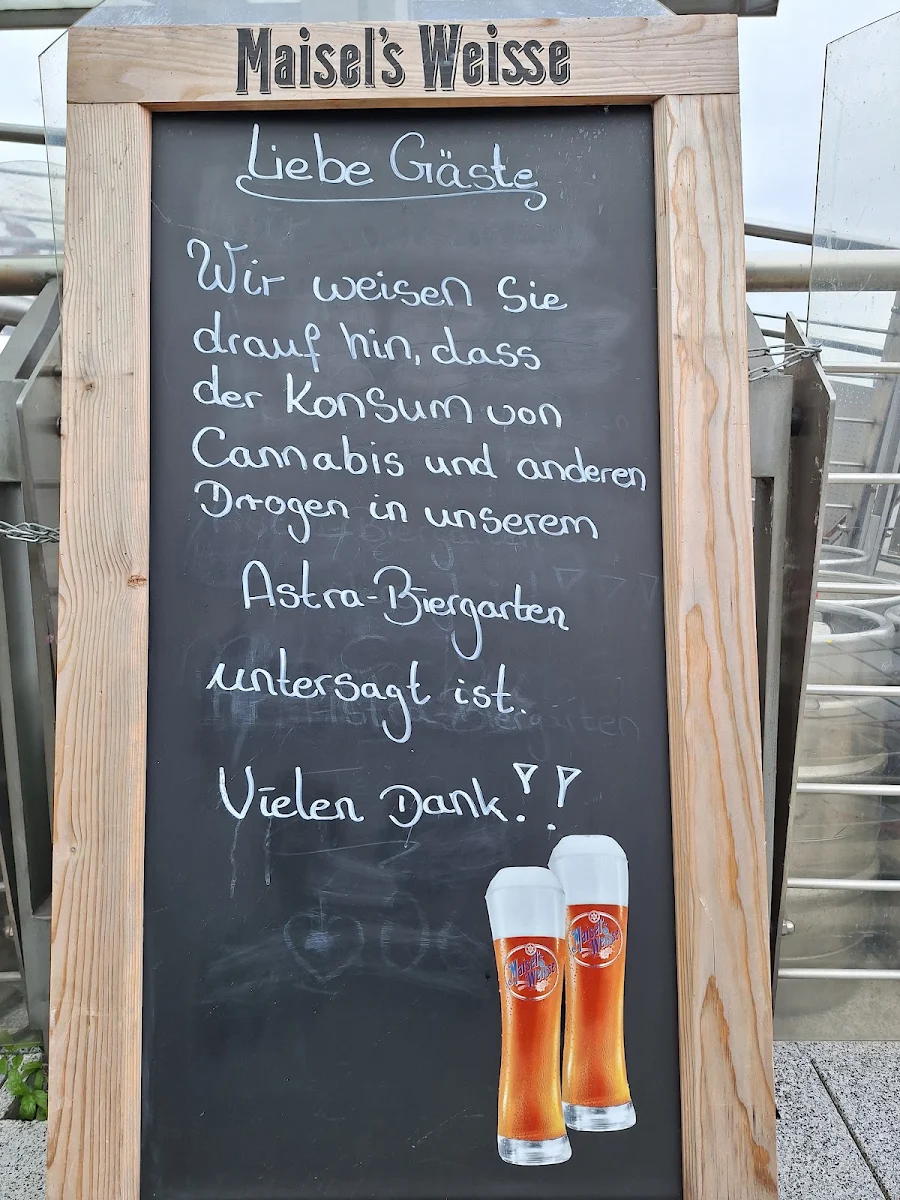 Maisel's Weisse
Liebe Gäste
Wir weisen Sie
drauf hin, dass
der Konsum von
Cannabis und anderen
Drogen in unserem
Astra-Biergarten
untersagt ist.
Vielen Dank!!
Maisel's
Weisse
Maisel's
Weisse